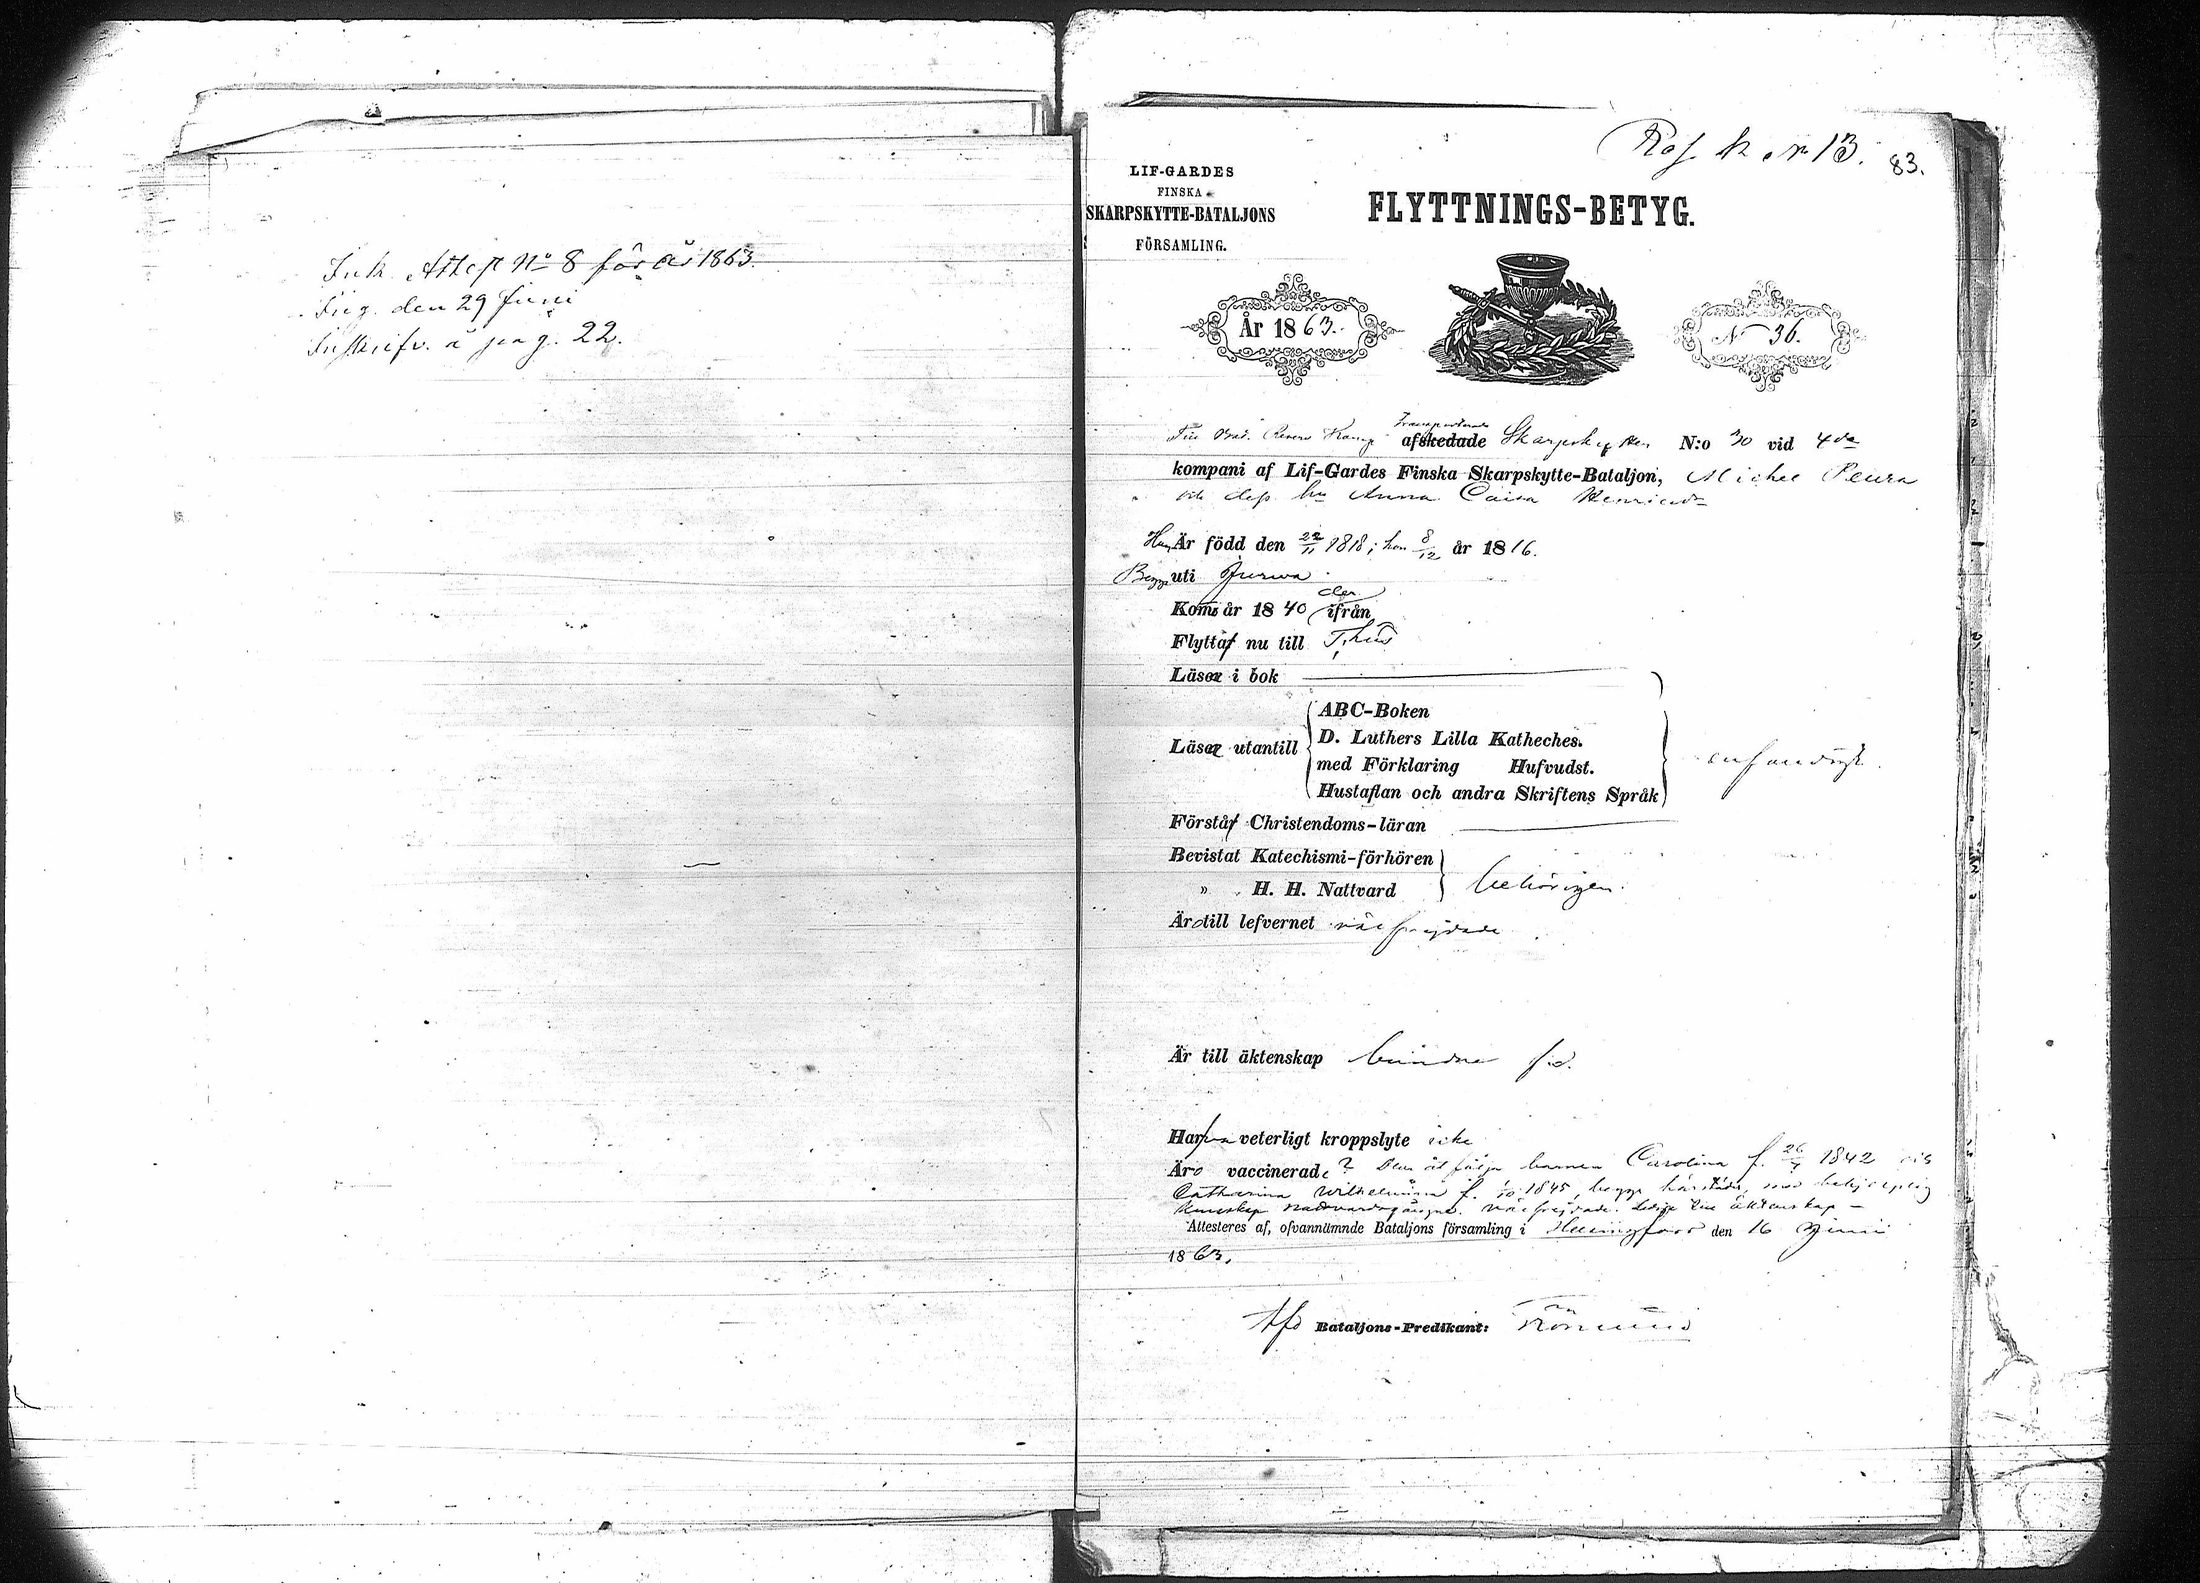 Ink. Attest No 8 för år 1863.
Ing. den 29 Juni
Inskrifv. å pag. 22.
13.
83.
LIF-GARDES
FINSKA
SKARPSKYTTE-BATALJONS
FÖRSAMLING.
FLYTTNINGS-BETYG.
År 1863.
N 36.
Transporterade
Till afskedade Skarpskytten N:o 30 vid 4de
kompani af Lif-Gardes Finska Skarpskytte-Bataljon, Michel Peura
och dess hu Anna Caisa Henricsdr
Han Är född den 22/11 1818; hon 8/12 år 1816.
Begge uti Jurva
der
Komo år 1840 ifrån
Flytta nu till
Läsa i bok
Läsa utantill
ABC-Boken
D. Luthers Lilla Katheches.
med Förklaring Hufvudst.
Hustaflan och andra Skriftens Språk
Förstå Christendoms-läran
Bevistat Katechismi-förhören
" H. H. Nattvard
behörigen.
Äro till lefvernet välfrejdade
Är till äktenskap bundne
Hafva veterligt kroppslyte icke
Äro vaccinerade? Dem åtfölja barnen Carolina f. 26/7 1842 och
Catharina Wilhelmina f. 1/10 1845, begge härstädes, med behjelplig
kunskap nattvardsgångne. välfrejdade. Lediga till äktenskap –
Attesteres af, ofvannämnde Bataljons församling i Helsingfors den 16 Junii
1863.
Bataljons-Predikant: